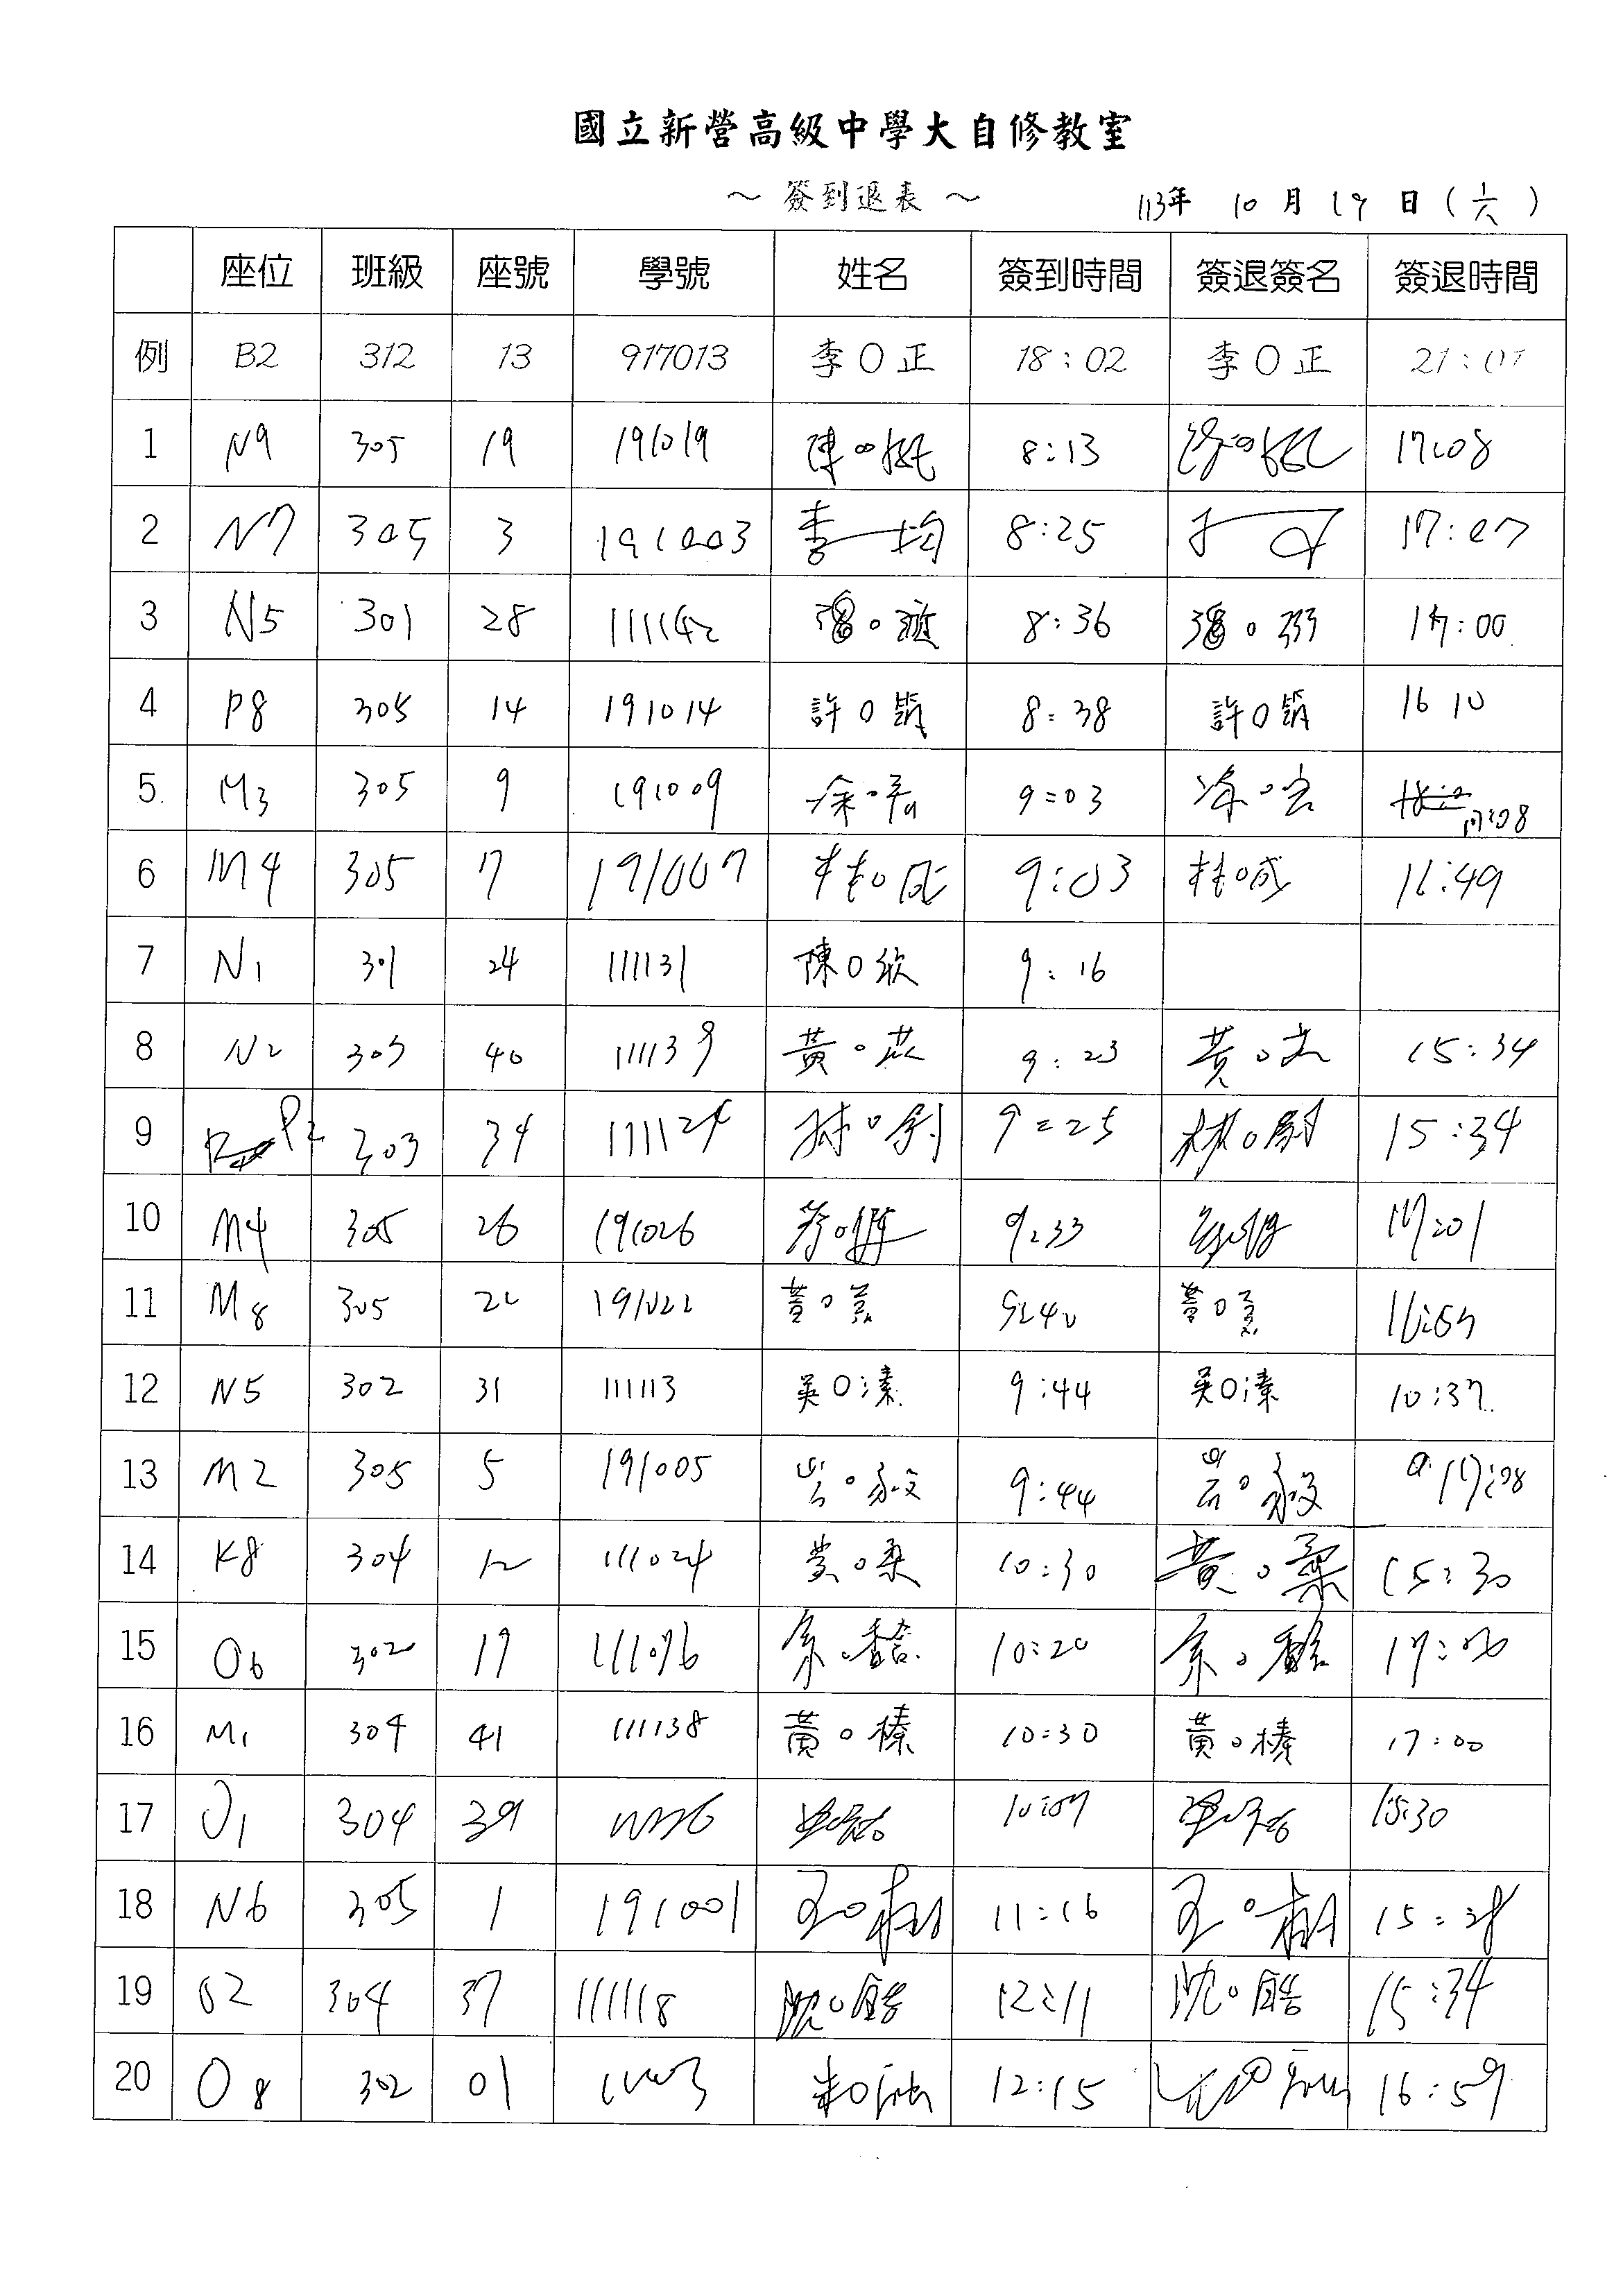 國立新營高級中學大自修教室
～ 簽到退表 ～ 113年 10 月 19 日 ( 六 )
座位 班級 座號 學號 姓名 簽到時間 簽退簽名 簽退時間
例 B2 312 13 917013 李O正 18:02 李O正 21:01
1 N9 305 19 191019 陳O 8:13 17:08
2 N7 305 3 191003 李 均 8:25 17:07
3 N5 301 28 8:36 17:00
4 P8 305 14 191014 許O筑 8:38 許O筑 16 10
5. M3 305 9 191009 9:03 17:08
6 M4 305 7 191007 林O成 9:03 林O成 16:49
7 N1 301 24 111131 陳O欣 9:16
8 N2 303 40 111139 黃O 9:23 黃O 15:34
9 P2 303 34 111124 林O 9:25 林O 15:34
10 M4 305 26 191026 9:33 17:01
11 M8 305 22 191022 黃O 9:40 黃O
12 N5 302 31 111113 吳O溱 9:44 吳O溱 10:37
13 M2 305 5 191005 岩O毅 9:44 岩O毅 17:08
14 K8 304 12 111024 黃O柔 10:30 黃O柔 15:30
15 O6 302 17 111076 余O馨 10:20 余O 17:00
16 M1 304 41 111138 黃O榛 10:30 黃O榛 17:00
17 O1 304 39 10:07 15:30
18 N6 305 1 191001 王O樹 11:16 王O樹 15:28
19 O2 304 37 111118 沈O皓 12:11 沈O皓 15:34
20 O8 302 01 朱O 12:15 16:59